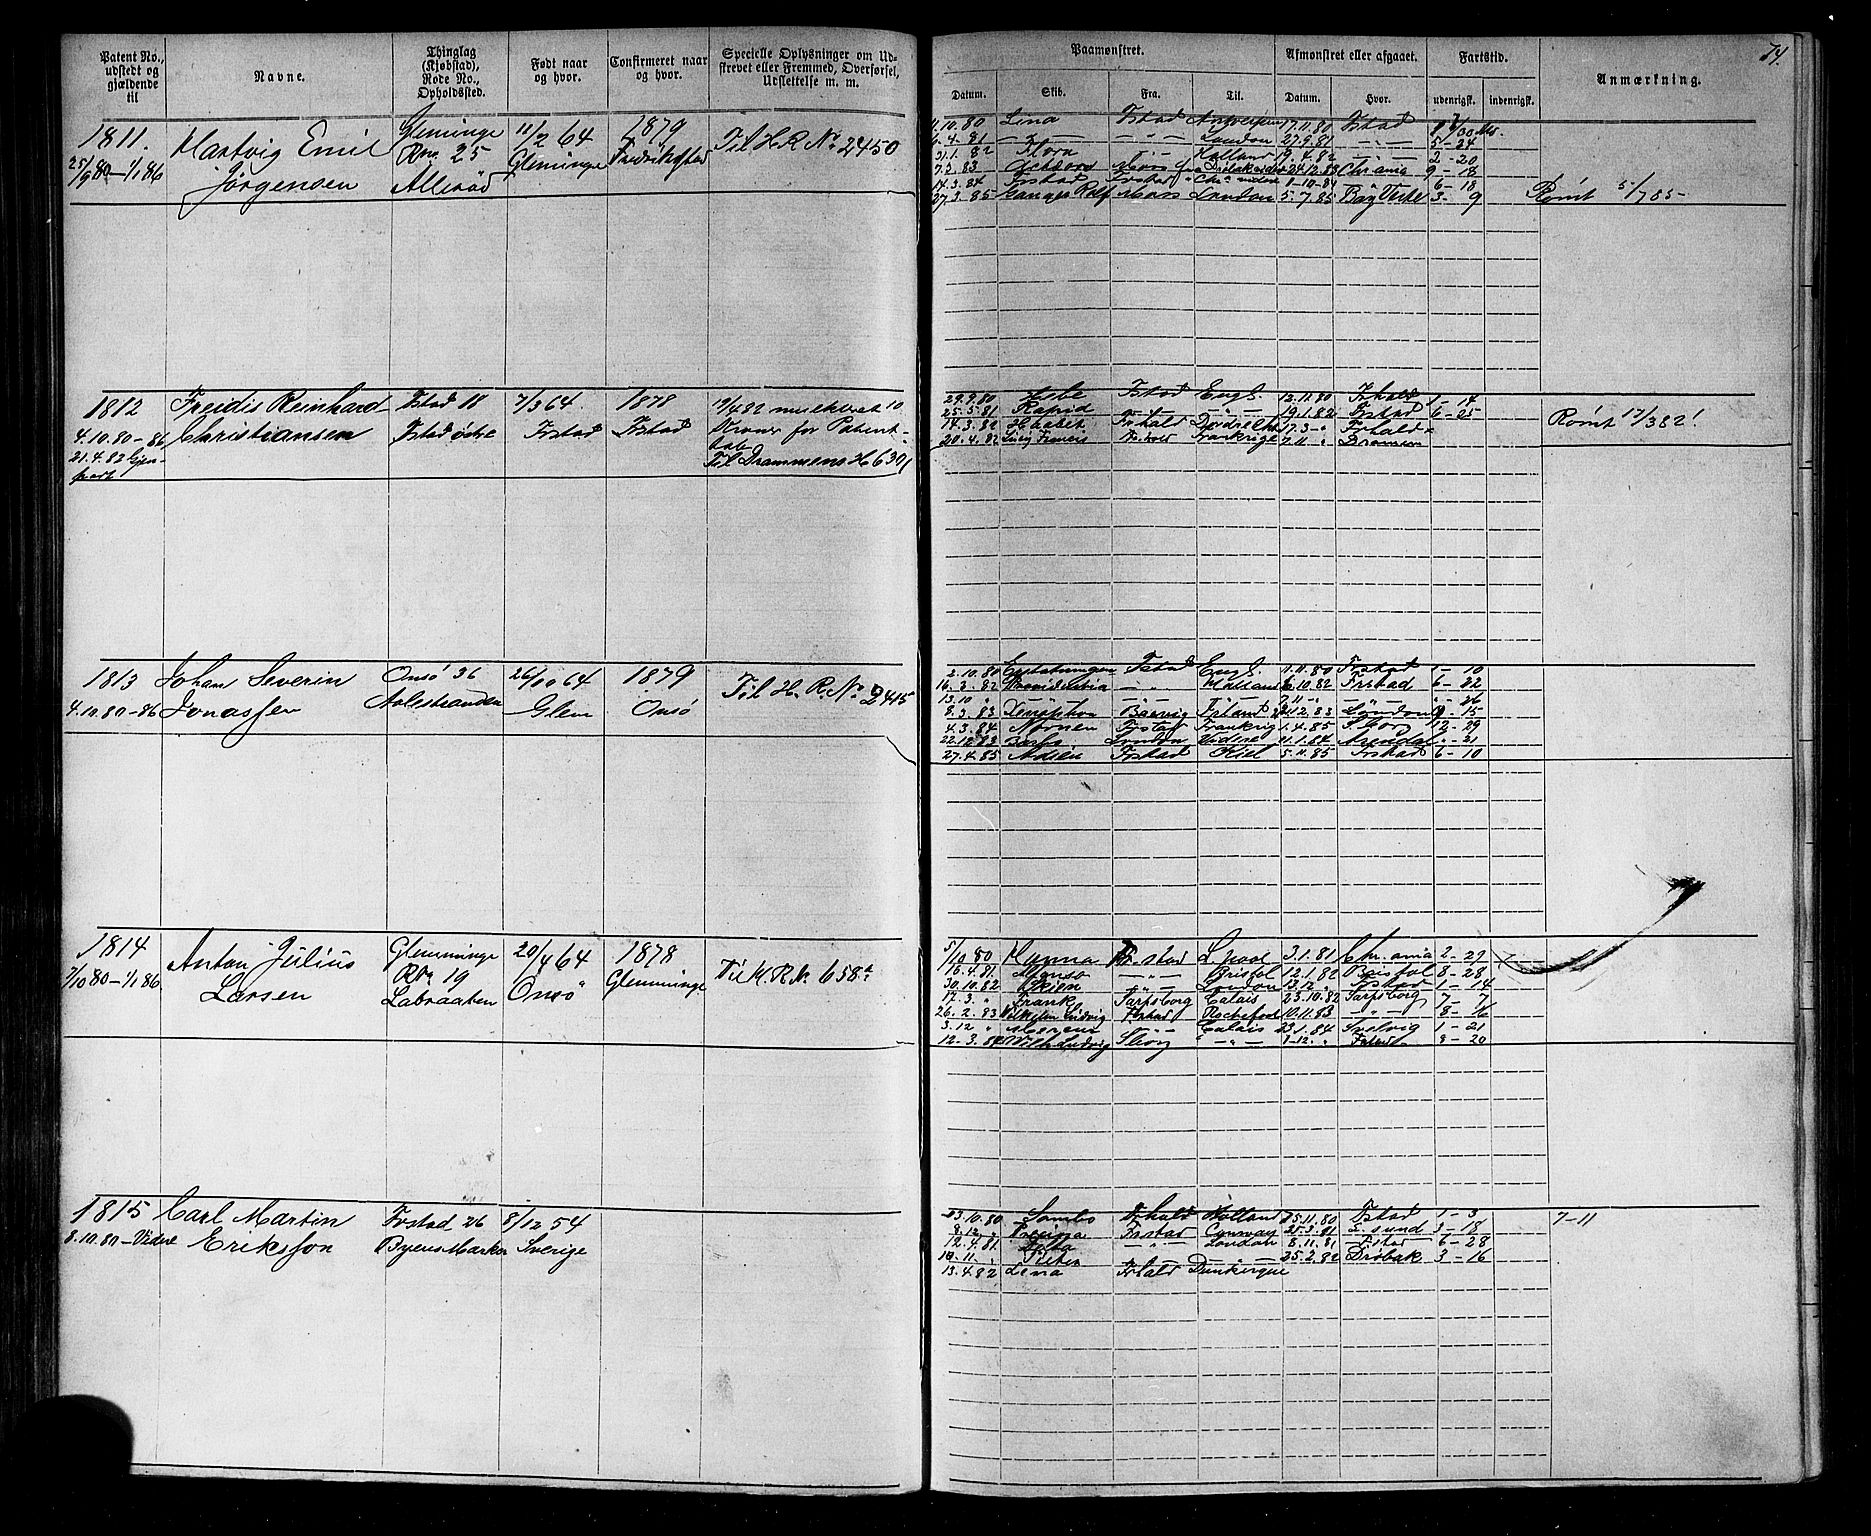 Patent No., udstedt og gjældende til | Navne. | Thinglag (Kjøbstad), Rode No., Opholdssted. | Født naar og hvor. | Confirmeret naar og hvor. | Specielle Oplysninger om Udstrevet eller Fremmed, Overførsel, Udslettelse m. m.
1811. Hartvig Emil Gleminge 11/2 64 1879 Til H. R. No 2450
25/9 80 – 1/1 86 Jørgensen Rno 25 Gleminge Fredrikstad
Allerød
1812 Freidis Reinhard Fstad 18 7/3 64. 1878 19/4 82 mulkteret 10
4.10.80–86 Christiansen Fstad østre Frstad Fstad Kroner for Patent-
21.4.82 Gjen- tab
part Til Drammens H 6301
1813 Johan Severin Onsö 36 26/10 64 1879 Til H. R. No 2445
4.10.80–86 Jonassen Aalestranden Glem Onsö
1814 Anton Julius Glemminge 20/4 64 1878 Til H. R. N. 658
7/10 80 – 1/1 86 Larsen Rno 19 Onsö Glemminge
Labraaten
1815 Carl Martin Frstad 26 8/12 54
8.10.80–Videre Eriksson Byens Marker Sverige
74.
Paamønstret. | Afmønstret eller afgaaet. | Fartstid. | Anmærkning.
Datum. | Skib. | Fra. | Til. | Datum. | Hvor. | udenrigsk. | indenrigsk.
1.10.80 Lina Fstad Antwerpen 17.11.80 Fstad
6.4.81 — " — — " — London 27.9.81 — " — 5-24
31.1.82 Flora — " — Holland 19.4.82 — " — 2-20
7.2.83 Moss 24.12.83 Chr.ania 9-18
14.3.84 Frstad videre 1-10-84 6-18
27.3.85 Ganges Rolf Moss London 5.7.85 3-9 Rømt 5/7 85-
29.9.80 Fstad Engl. 12.11.80 Frhald 1-14
25.5.81 19.1.82 Frstad 6-25
14.3.82 Haabet Frhald 17.3- Frhald Rømt 17/3 82!
20.4.82 Frhald Frankrige 7.11 " Drammen
2.10.80 Fstad Engl. 1.11.80 Frstad 1-10
16.3.82 — " — Holland 6.10.82 Frstad 6-22
13.10 " — " — 7.11 - — " — "-26
8.3.83 Xenophon 12.83 London 9-15
4.3.84 Nornen Frstad Frankrig 1.4.85 Sborg 12-29
22.12.83 London Videre 21.1.84 Arendal "-21
27.4.85 Frstad Kiel 5.11.85 Frstad 6-10
5/10 80 Hanna Frstad L.pool 3.1.81 Chr.ania 2-29
16.4.81 Alonso — " — Bristol 12.1.82 Bristol 8-28
30.10.82 — " — London 13.12 " Frstad 1-14
17.3. " Frank Sarpsborg Calais 23.10.82 Sarpsborg 7-7
26.2.83 Vilhelm Ludvig Frstad Rochefort 10.11.83 — " — 8-16
3.12 " — " — Calais 23.1.84 Svelvig 1-21
12.3.84 Vilh. Ludvig Sborg — " — 1-12. " Frstad 8-20
23.10.80 Sambo Frhald Holland 25.11.80 Fstad 1-3 7-11
8.12 Frstad 25.3.81 sund 3-18
12.4.81 — " — London 8.11.81 Frstad 6-28
10.11. " — " — 25.2.82 Drøbak 3-16
13.4.82 Lina Frhald Dunkerque